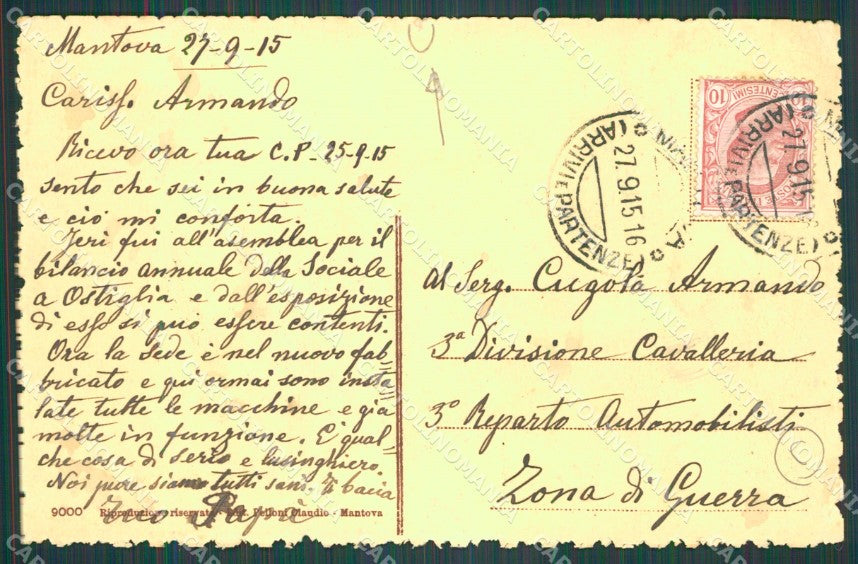 Mantova 27-9-15
Cariss. Armando
Ricevo ora tua C.P. 25-9-15
sento che sei in buona salute
e ciò mi conforta.
Jeri fui all'asemblea per il
bilancio annuale della Sociale
a Ostiglia e dall'esposizione
di essa si può essere contenti.
Ora la sede è nel nuovo fab
bricato e qui ormai sono insta
late tutte le macchine e già
molte in funzione. E' qual
che cosa di serio e lusinghiero.
Noi pure siamo tutti sani. Ti bacia
tuo Papà
9000 Riproduzione riservata - Pelloni Claudio - Mantova
10
CENTESIMI
(ARRIVI E PARTENZE)
27.9.15 16
MANTOVA
(ARRIVI E PARTENZE)
27.9.15
Al Serg. Cugola Armando
3ª Divisione Cavalleria
3º Reparto Automobilisti
Zona di Guerra
CARTOLINOMANIA